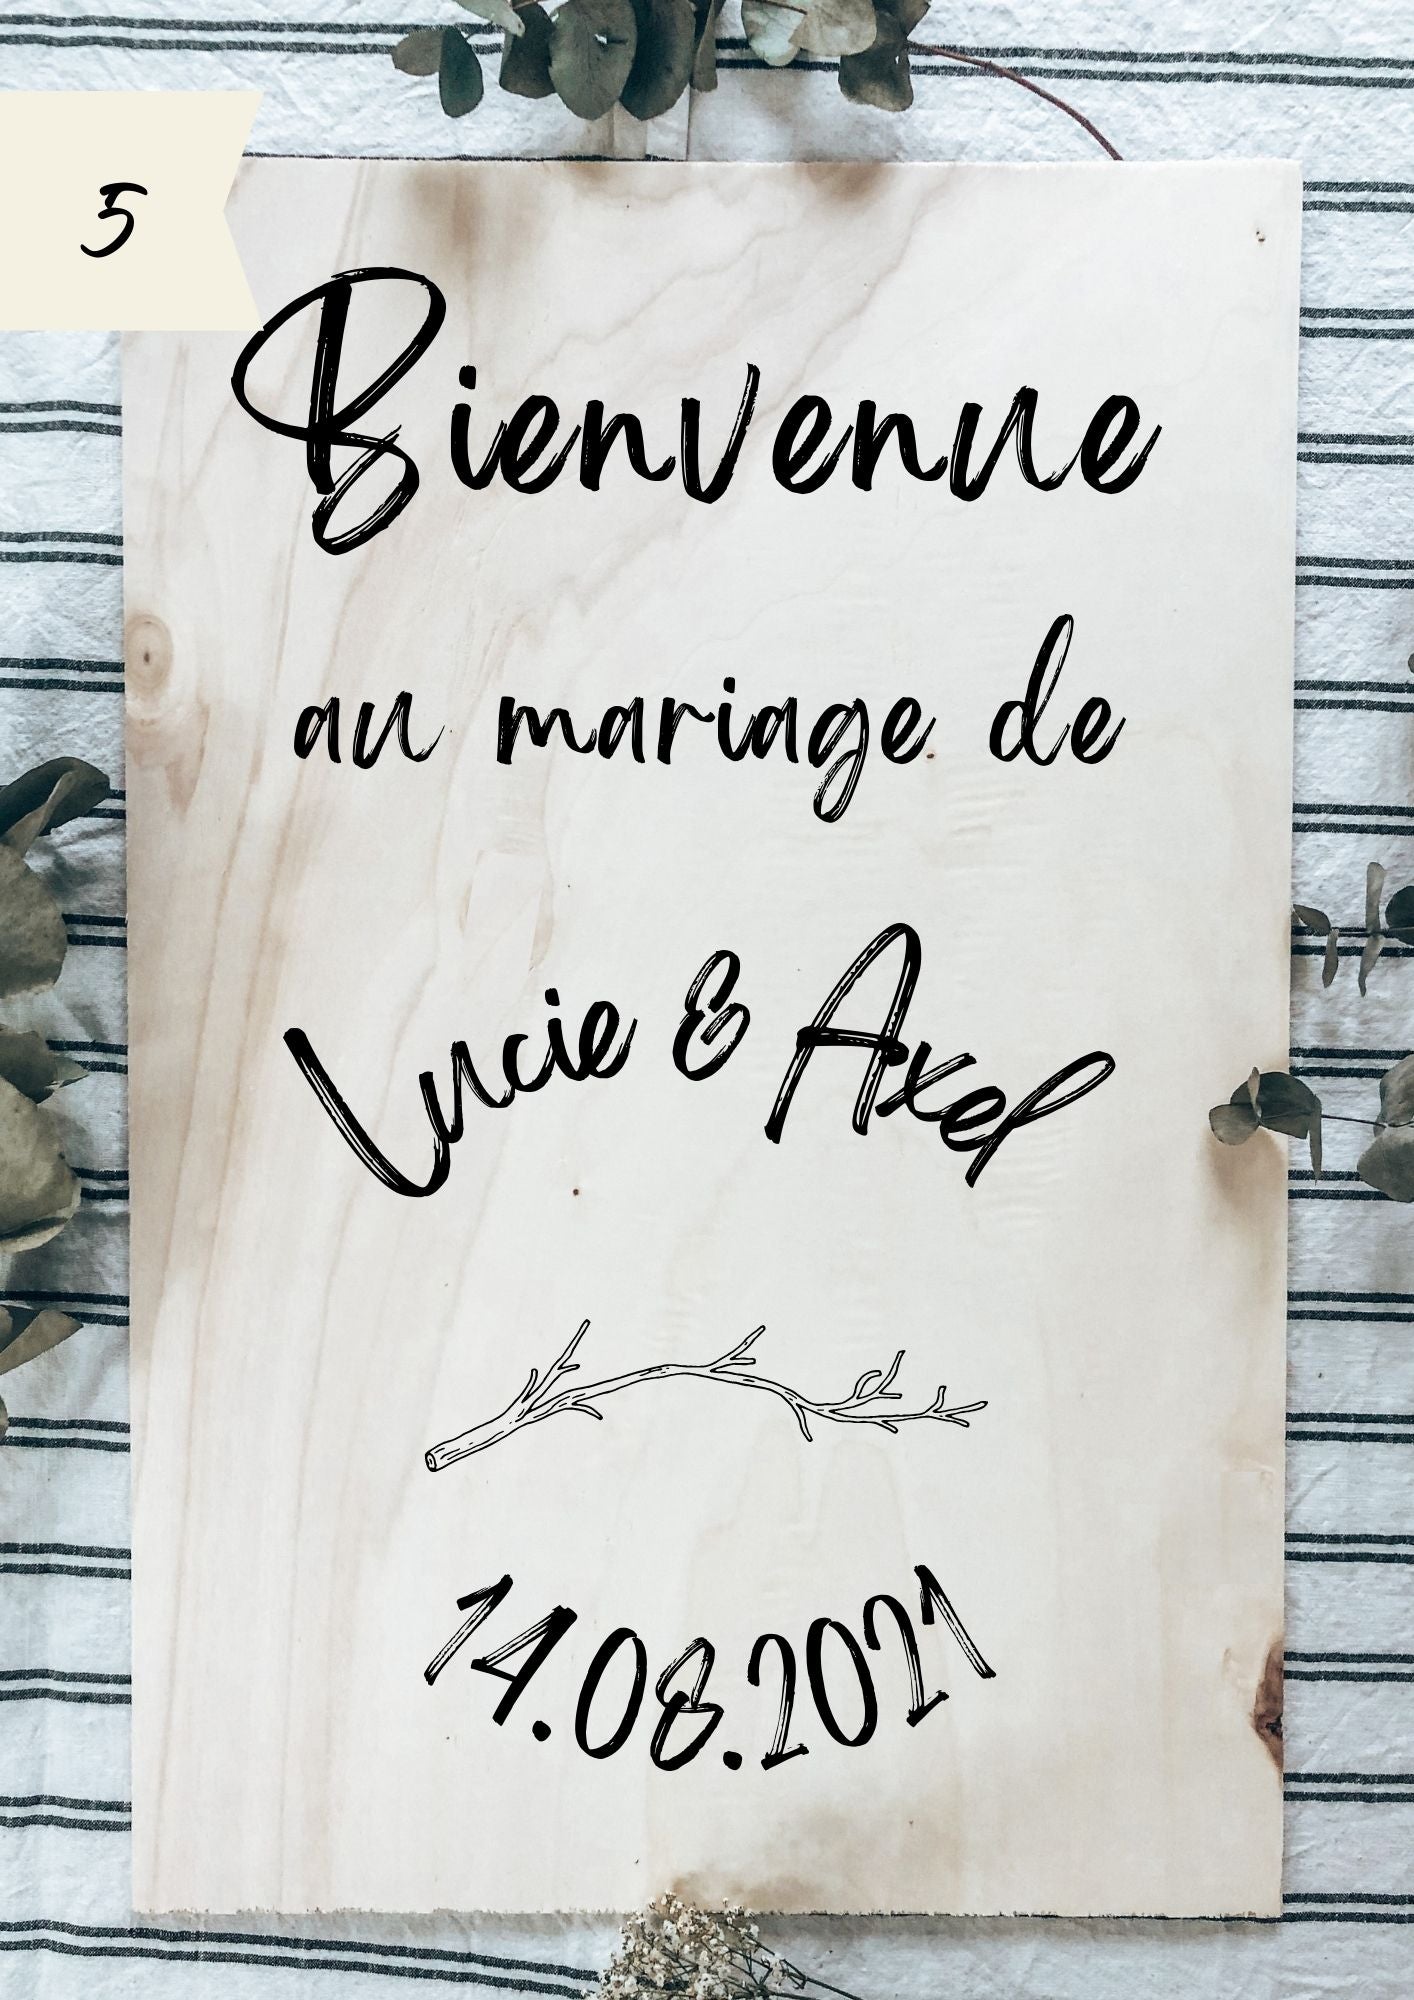 5
Bienvenue
au mariage de
Lucie & Axel
14.08.2021